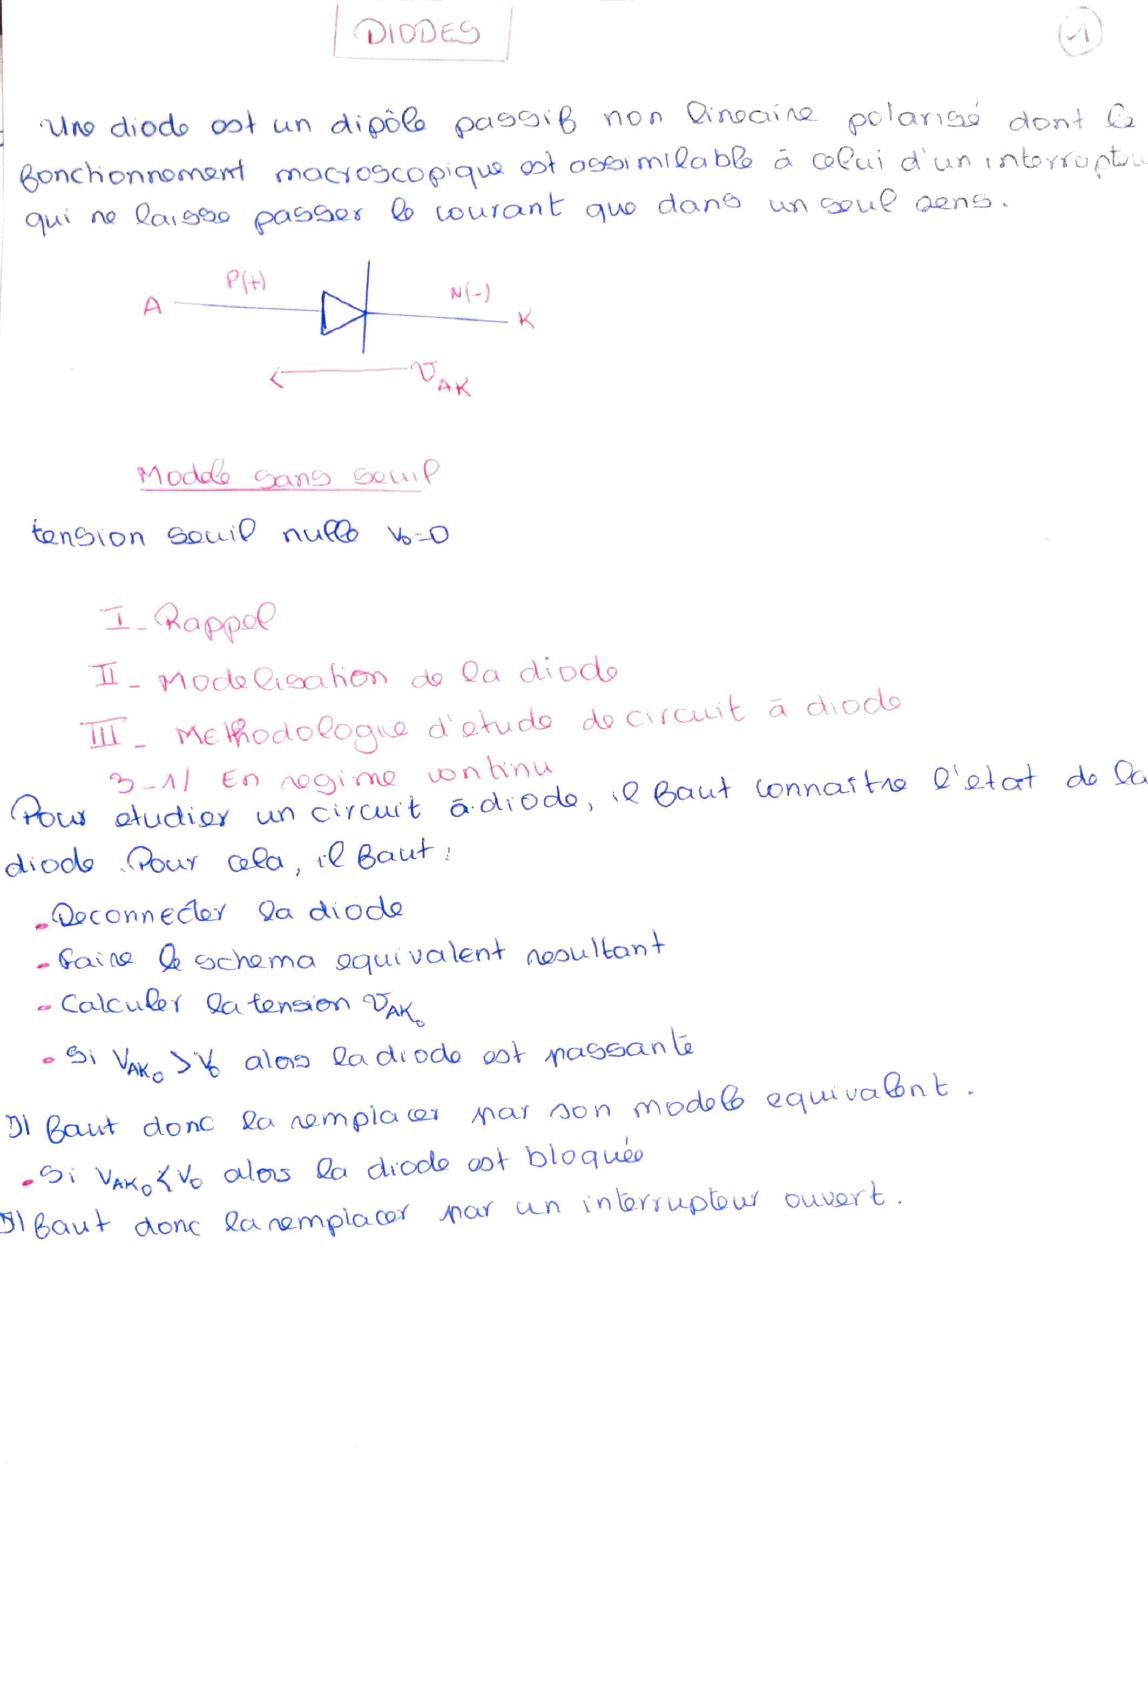 DIODES
1
Une diode est un dipôle passif non lineaire polarisé dont le
fonctionnement macroscopique est assimilable à celui d'un interrupteu
qui ne laisse passer le courant que dans un seul sens.
P(+)
N(-)
A
K
VAK
Modèle sans seuil
tension seuil nulle V0=0
I- Rappel
II- Modelisation de la diode
III- Methodologie d'etude de circuit à diode
3-1/ En regime continu
Pour etudier un circuit à diode, il faut connaitre l'etat de la
diode. Pour cela, il faut:
- Deconnecter la diode
- faire le schema equivalent resultant
- Calculer la tension VAK0
• Si VAK0 > V0 alors la diode est passante
Il faut donc la remplacer par son modele equivalent.
• Si VAK0 < V0 alors la diode est bloquée
Il faut donc la remplacer par un interrupteur ouvert.